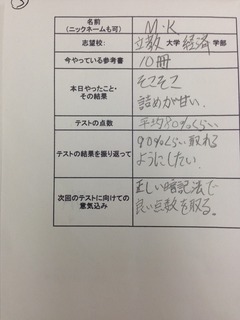 ③
名前
(ニックネームも可)
M.K
志望校:
立教 大学 経済 学部
今やっている参考書
10冊
本日やったこと・
その結果
そこそこ
詰めが甘い.
テストの点数
平均80%くらい
テストの結果を振り返って
90%くらい取れる
ようにしたい.
次回のテストに向けての
意気込み
正しい暗記法で
良い点数を取る。